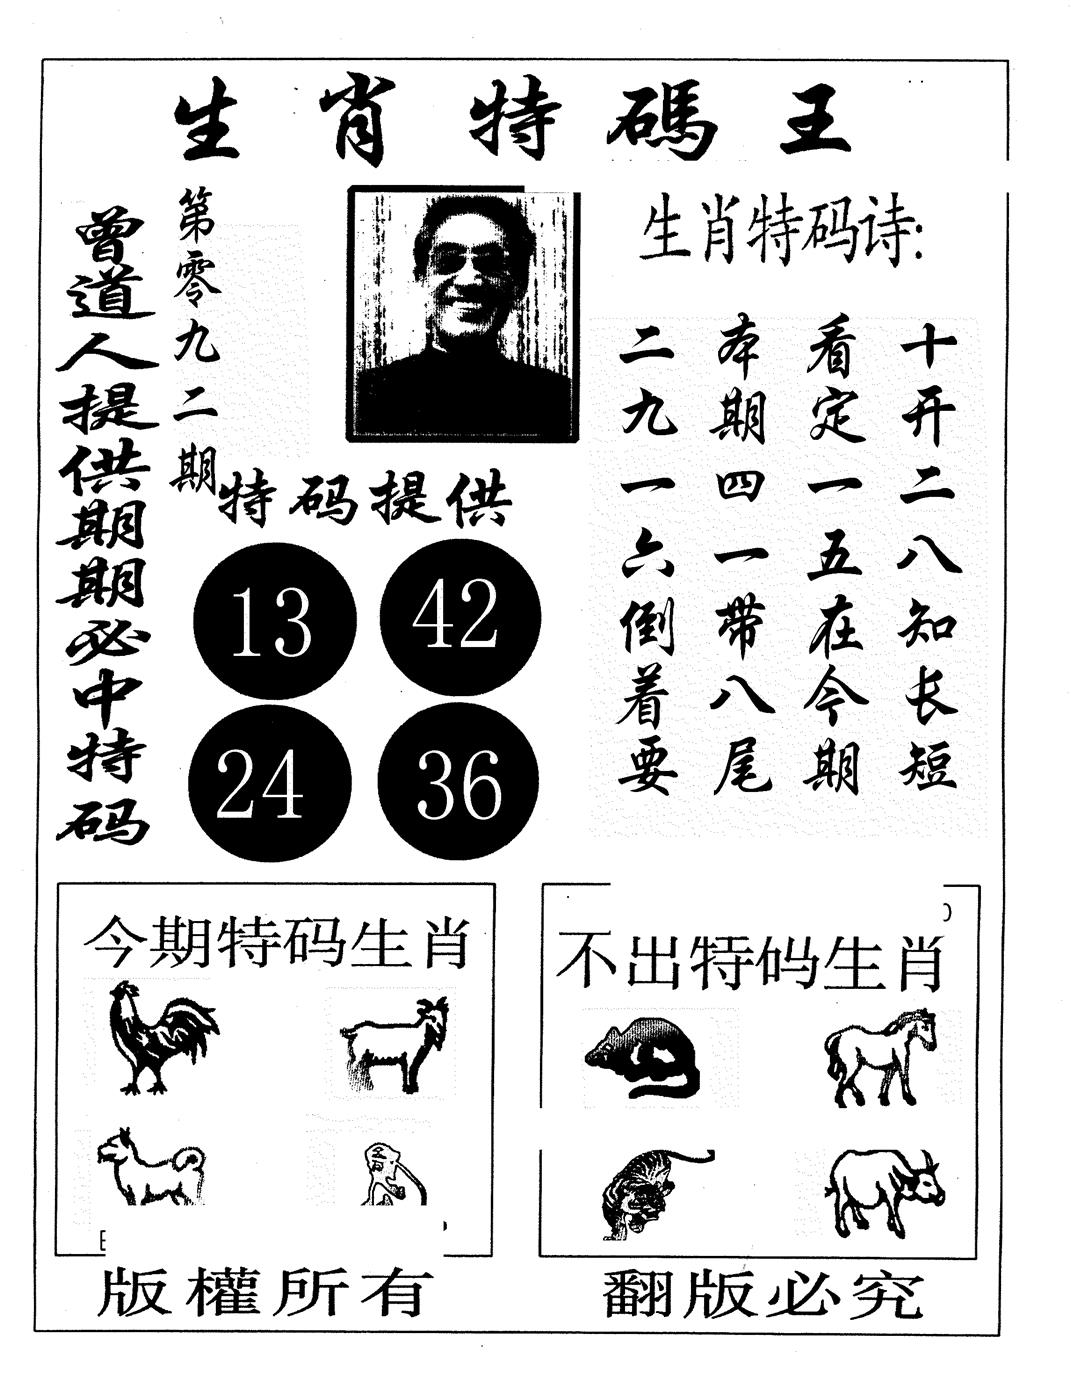 生肖特碼王
曾道人提供期期必中特码
第零九二期
生肖特码诗:
十开二八知长短
看定一五在今期
本期四一带八尾
二九一六倒着要
特码提供
13 42
24 36
今期特码生肖
不出特码生肖
版權所有
翻版必究